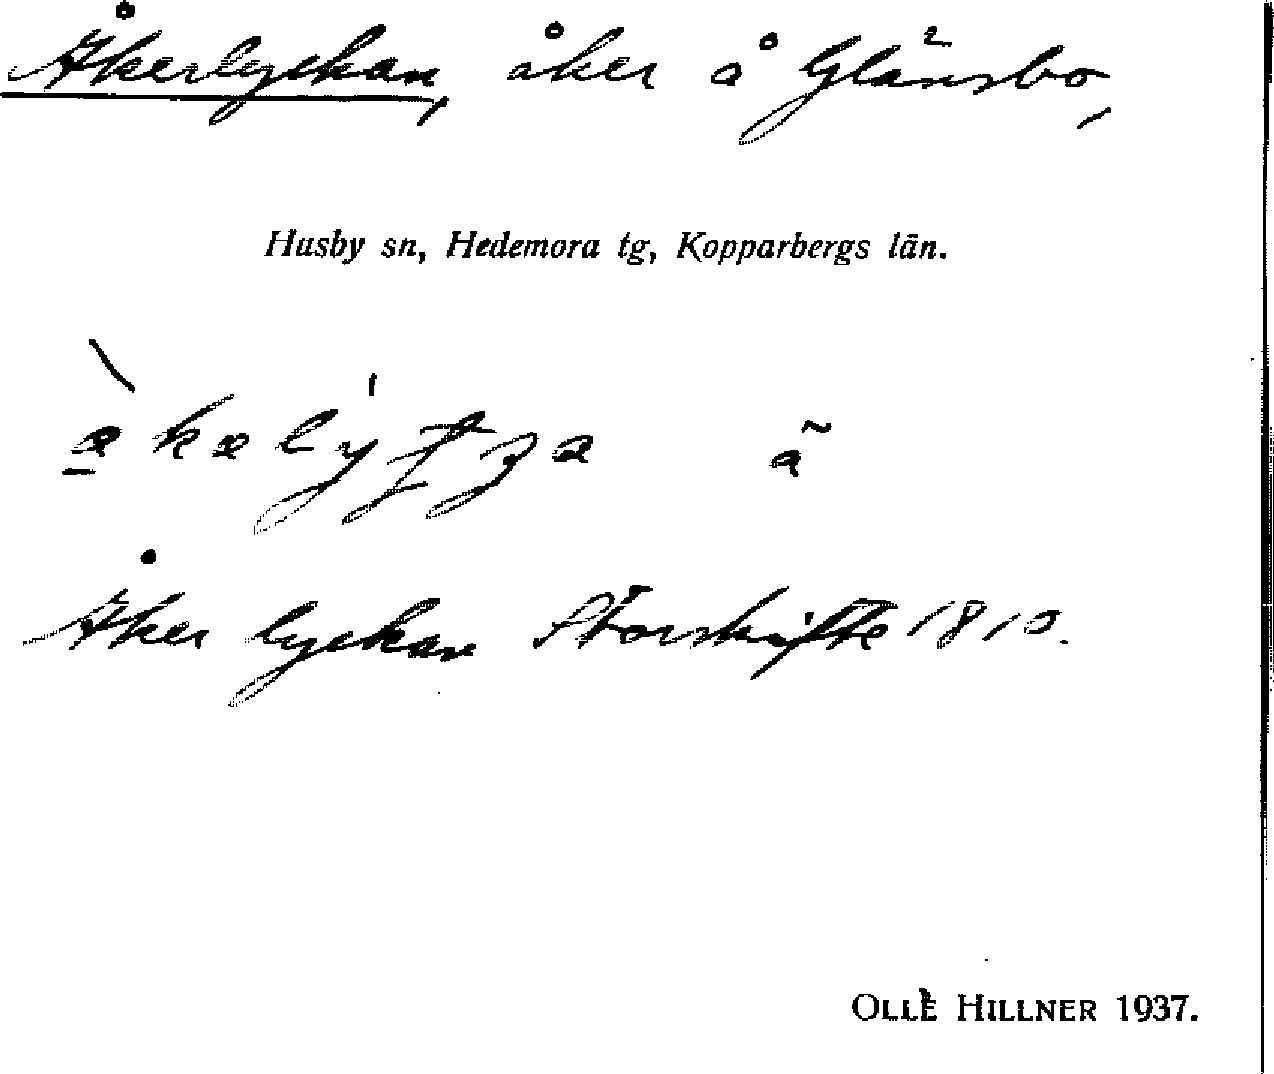 Åkerlyckan, åker å Glänsbo,
Husby sn, Hedemora tg, Kopparbergs län.
Åker lyckan Storskifte 1810.
OLLE HILLNER 1937.